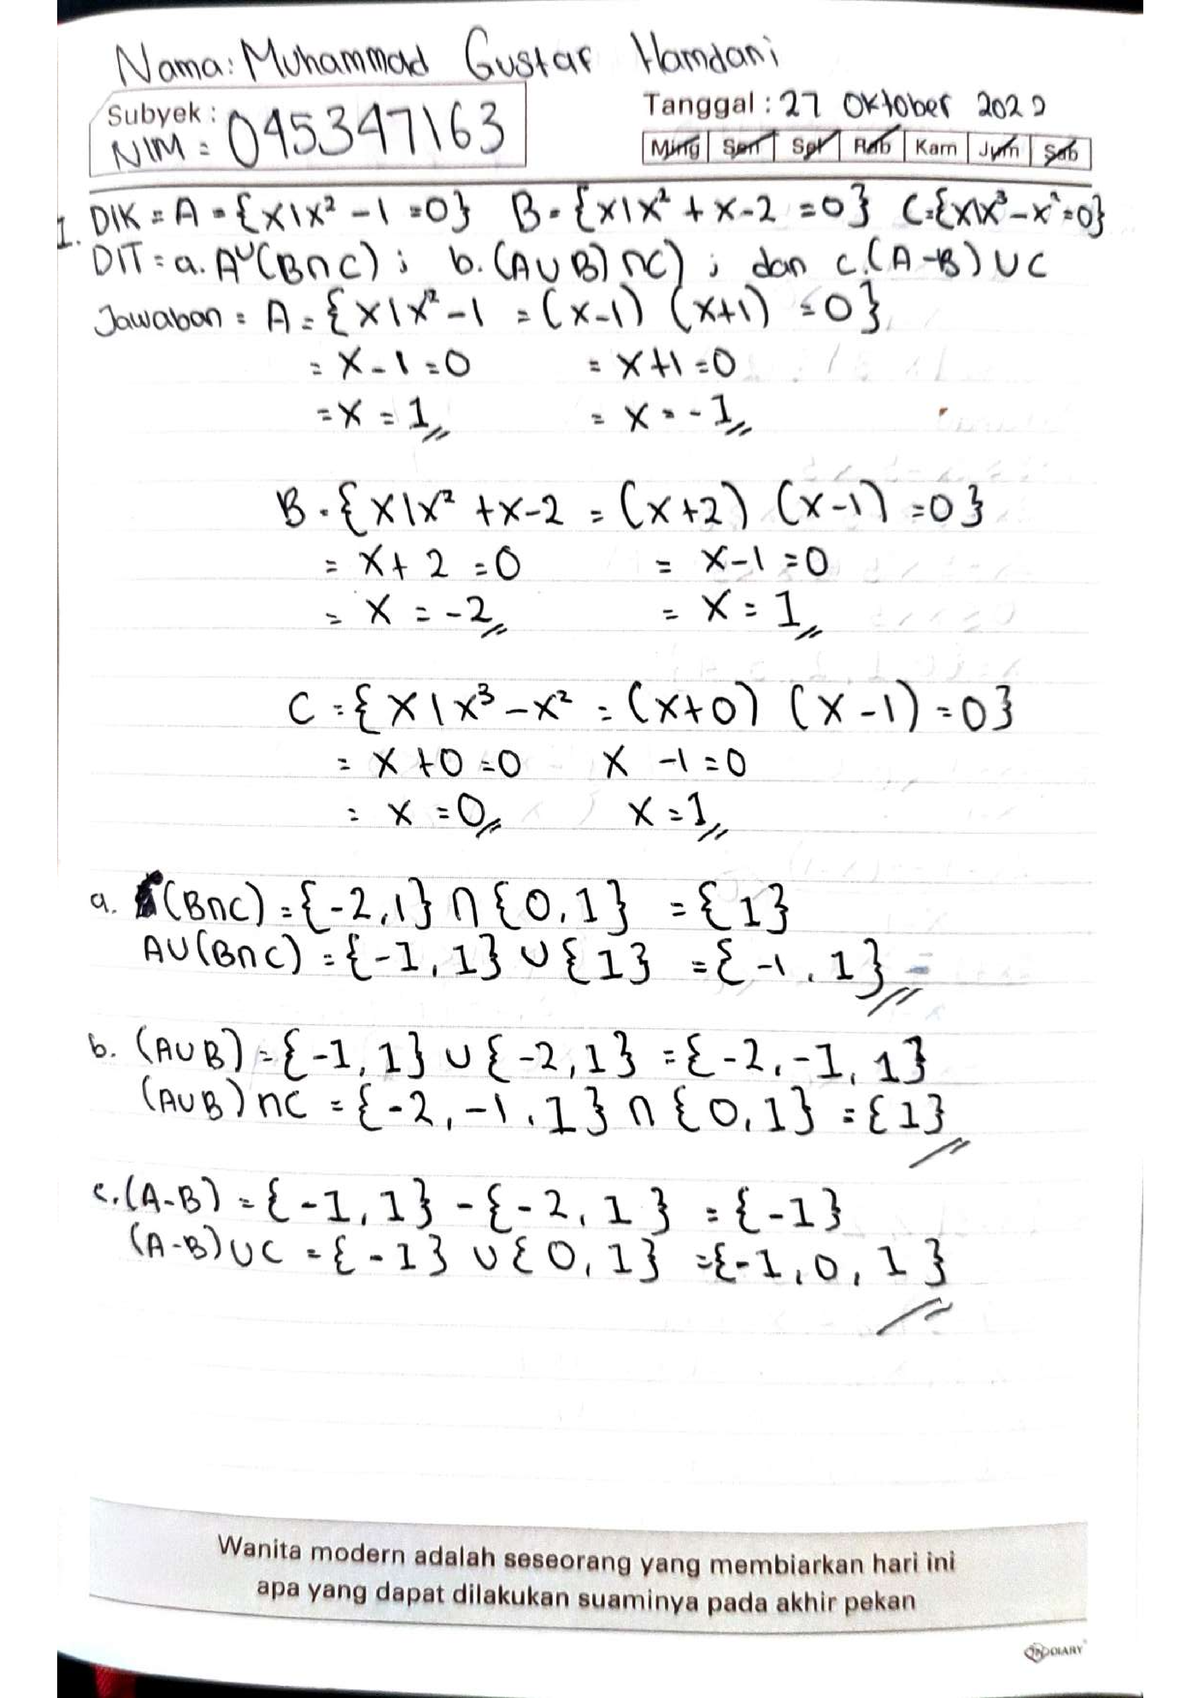 Nama: Muhammad Gustaf Hamdani
Subyek :
NIM = 045347163
Tanggal : 27 Oktober 2022
Ming Sen Sel Rab Kam Jum Sab
1. DIK = A = {x|x² - 1 = 0} B = {x|x² + x - 2 = 0} C = {x|x³ - x² = 0}
DIT = a. A∪(B∩C) ; b. (A∪B)∩C) ; dan c. (A-B)∪C
Jawaban = A = {x|x² - 1 = (x-1) (x+1) = 0}
= x - 1 = 0 = x+1 = 0
= x = 1 = x = -1
B = {x|x² + x - 2 = (x+2) (x-1) = 0}
= x + 2 = 0 = x - 1 = 0
= x = -2 = x = 1
C = {x|x³ - x² = (x+0) (x-1) = 0}
= x + 0 = 0 x - 1 = 0
= x = 0 x = 1
a. (B∩C) = {-2,1} ∩ {0,1} = {1}
A∪(B∩C) = {-1, 1} ∪ {1} = {-1, 1}
b. (A∪B) = {-1, 1} ∪ {-2, 1} = {-2, -1, 1}
(A∪B)∩C = {-2, -1, 1} ∩ {0, 1} = {1}
c. (A-B) = {-1, 1} - {-2, 1} = {-1}
(A-B)∪C = {-1} ∪ {0, 1} = {-1, 0, 1}
Wanita modern adalah seseorang yang membiarkan hari ini
apa yang dapat dilakukan suaminya pada akhir pekan
DIARY